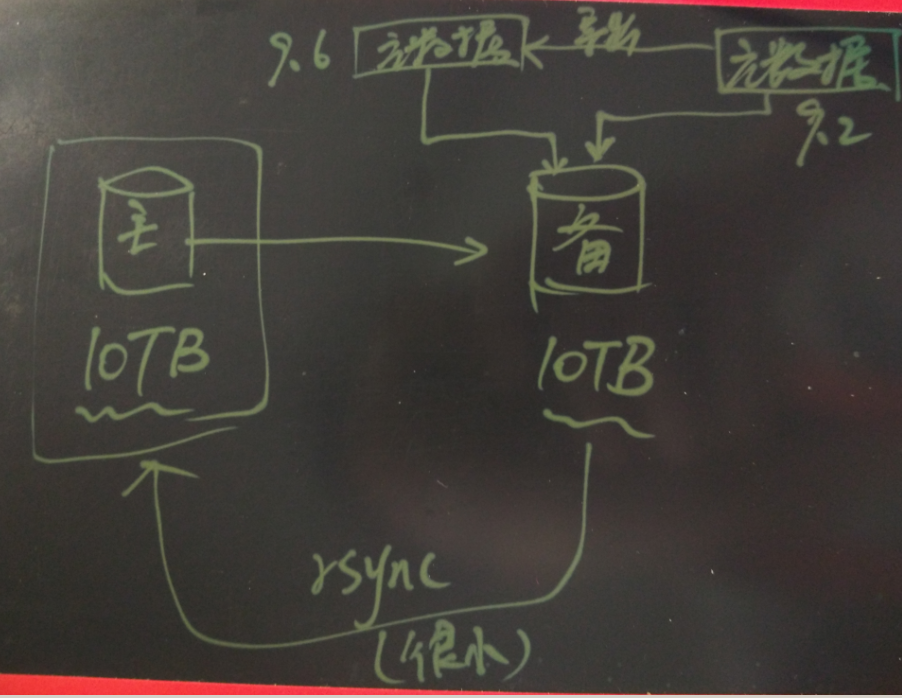 9.6
元数据
导
元数据
9.2
主
备
10TB
10TB
rsync
(很小)